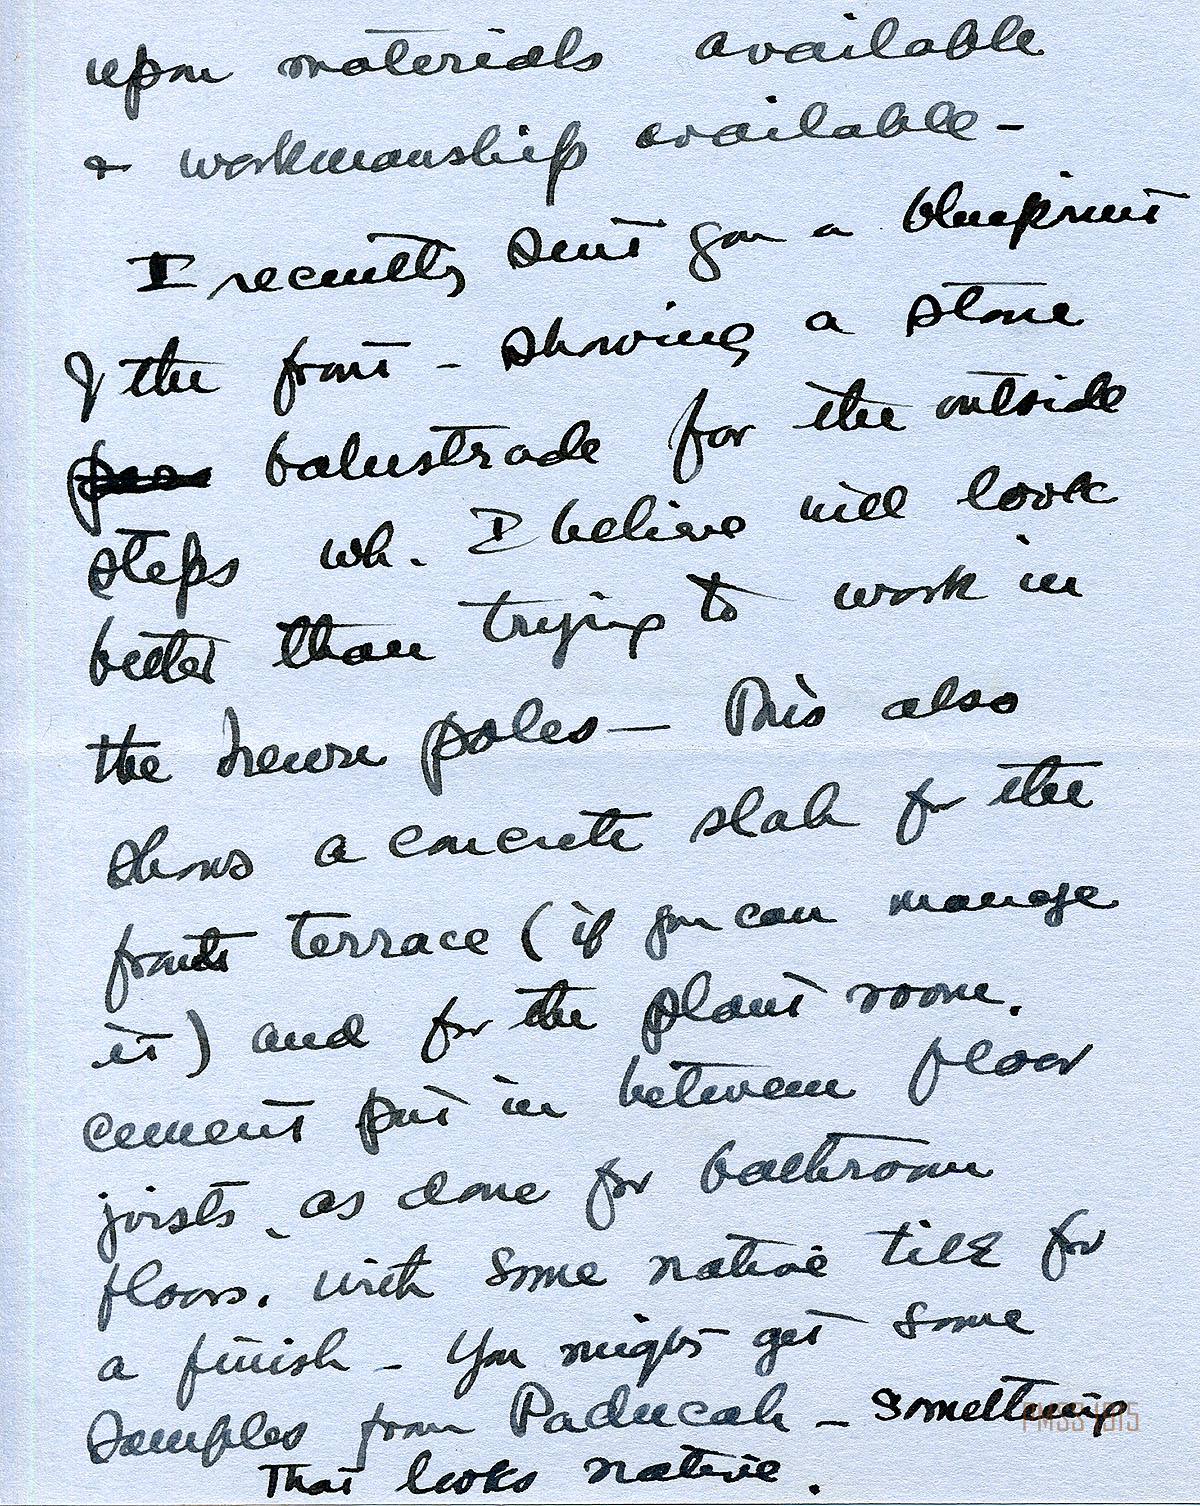 upon materials available
& workmanship available -
I recently sent you a blueprint
of the front - showing a stone
balustrade for the outside
steps wh. I believe will look
better than trying to work in
the hewn poles - This also
shows a concrete slab for the
front terrace (if you can manage
it) and for the plant room.
cement put in between floor
joists, as done for bathroom
floors. with some native tile for
a finish - You might get some
samples from Paducah - something
that looks native.